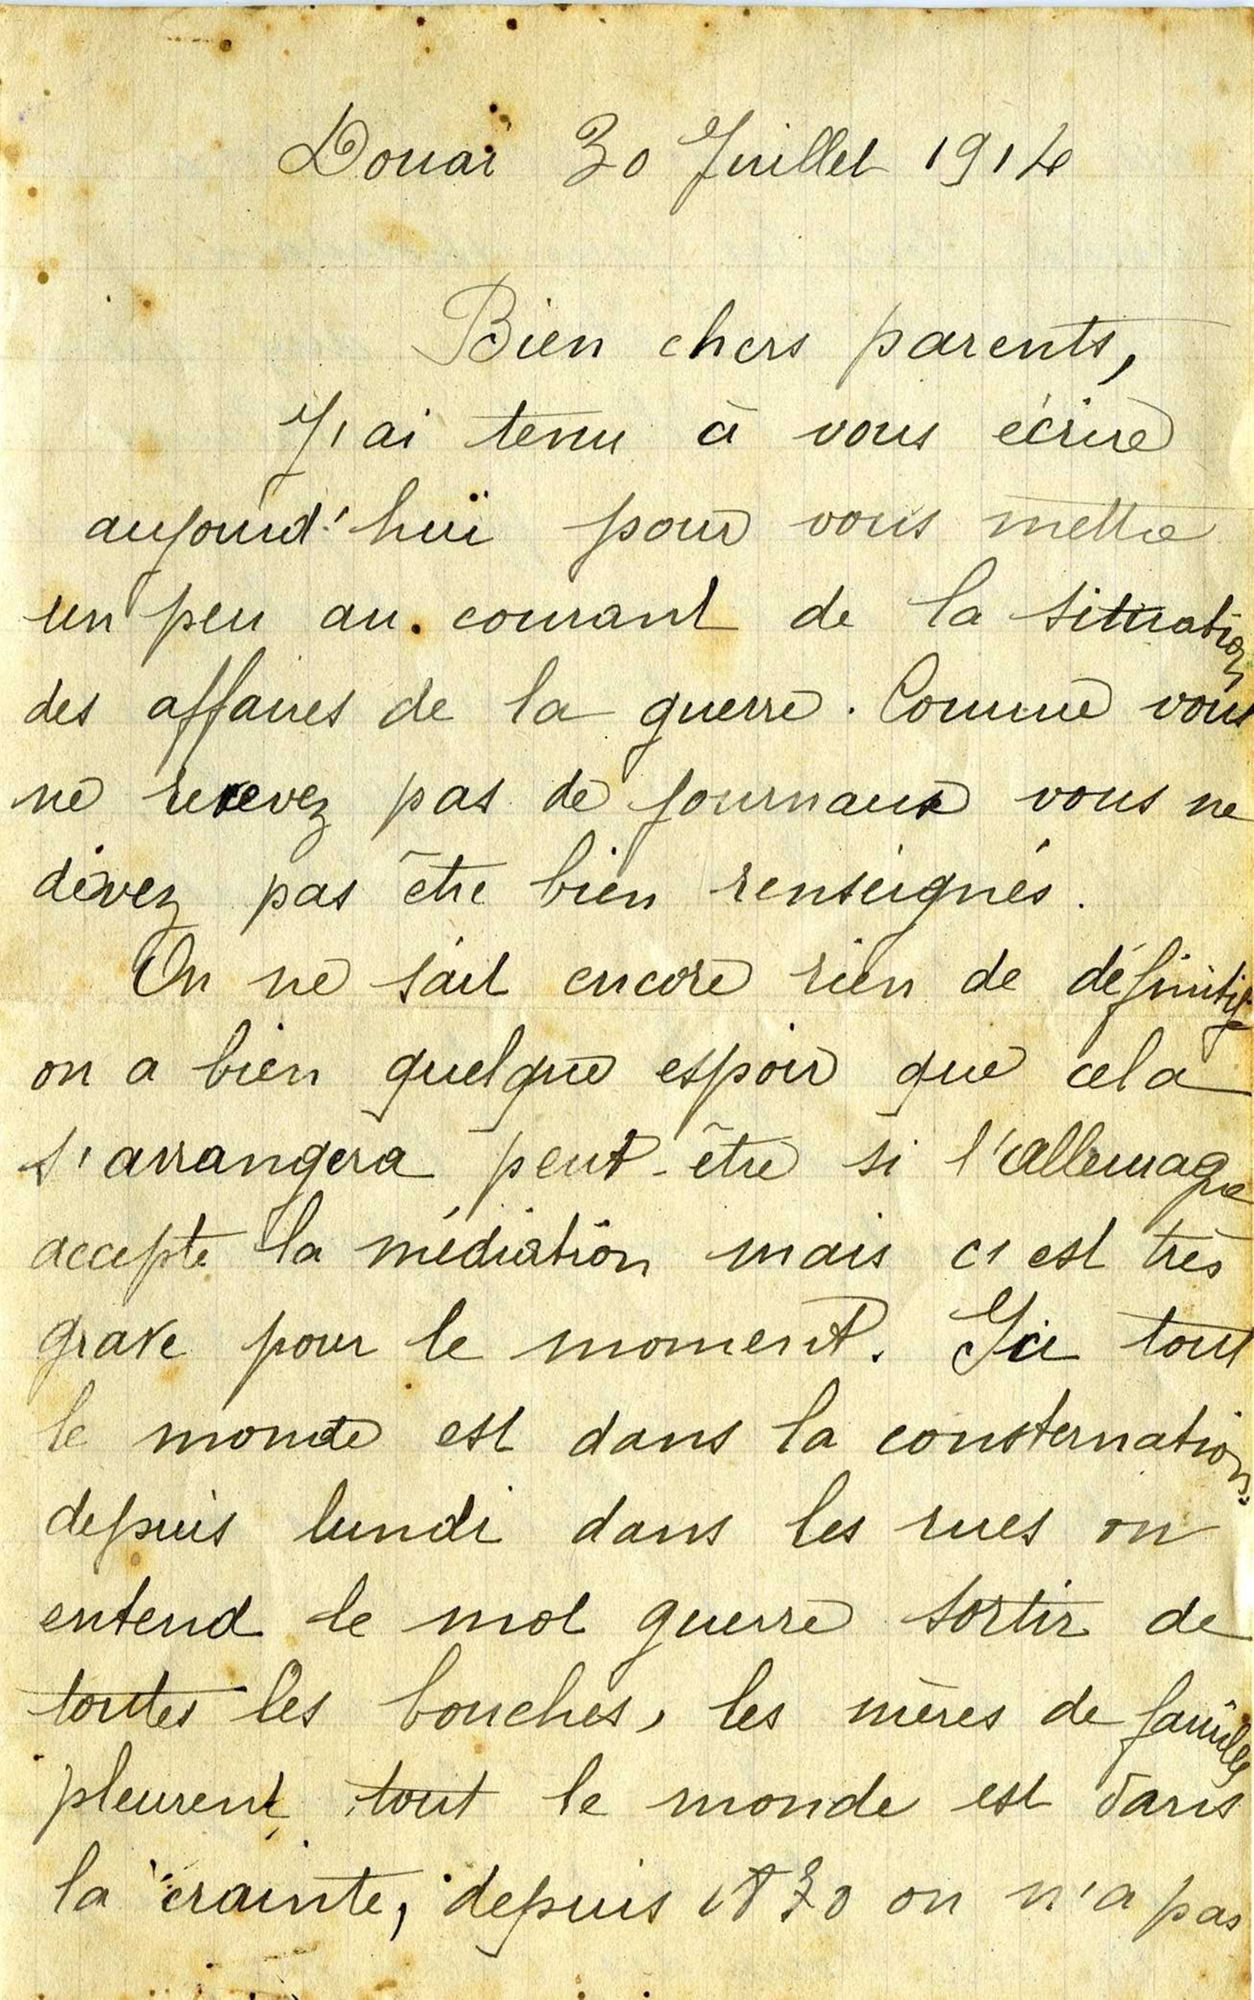 Douai 30 Juillet 1914
Bien chers parents,
J'ai tenu à vous écrire
aujourd'hui pour vous mettre
un peu au courant de la situation
des affaires de la guerre. Comme vous
ne recevez pas de journaux vous ne
devez pas être bien renseignés.
On ne sait encore rien de définitif
on a bien quelque espoir que cela
s'arrangera peut-être si l'allemagne
accepte la médiation mais c'est très
grave pour le moment. Ici tout
le monde est dans la consternation.
depuis lundi dans les rues on
entend le mot guerre sortir de
toutes les bouches, les mères de familles
pleurent tout le monde est dans
la crainte, depuis 1870 on n'a pas